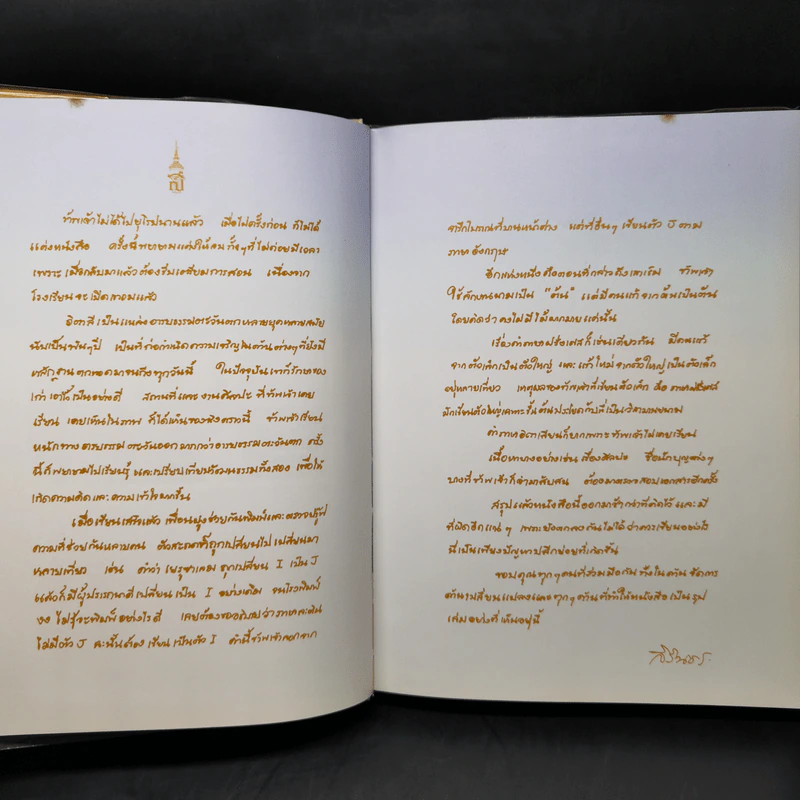 ข้าพเจ้าไม่ได้ไปยุโรปนานแล้ว เมื่อไปครั้งก่อน ก็ไม่ได้
แต่งหนังสือ ครั้งนี้พยายามแต่งให้จบ ทั้งๆที่ไม่ค่อยมีเวลา
เพราะ เมื่อกลับมาแล้วต้องรีบเตรียมการสอน เนื่องจาก
โรงเรียนจะเปิดเทอมแล้ว
อิตาลีเป็นแหล่งอารยธรรมตะวันตกหลายยุคหลายสมัย
นับเป็นพันๆปี เป็นที่ก่อกำเนิดความเจริญในด้านต่างๆที่ยังมี
หลักฐานตกทอดมาจนถึงทุกวันนี้ ในปัจจุบันเขาก็รักษาของ
เก่าเอาไว้เป็นอย่างดี สถานที่และงานศิลปะที่ข้าพเจ้าเคย
เรียน เคยเห็นในภาพ ก็ได้เห็นของจริงคราวนี้ ข้าพเจ้าเรียน
หนักทางอารยธรรมตะวันออกมากกว่าอารยธรรมตะวันตก ครั้ง
นี้ก็พยายามไปเรียนรู้ และเปรียบเทียบวัฒนธรรมทั้งสอง เพื่อให้
เกิดความคิดและความเข้าใจมากขึ้น
เมื่อเขียนเสร็จแล้ว เพื่อนฝูงช่วยกันพิมพ์และตรวจปรู๊ฟ
ความที่ช่วยกันหลายคน ตัวสะกดก็ถูกเปลี่ยนไปเปลี่ยนมา
หลายเที่ยว เช่น คำว่า เยรูซาเลม ถูกเปลี่ยน I เป็น J
แล้วก็มีผู้ปรารถนาดีเปลี่ยนเป็น I อย่างเดิม จนโรงพิมพ์
งง ไม่รู้จะพิมพ์อย่างไรดี เลยต้องขออธิบายว่าภาษาละติน
ไม่มีตัว J ฉะนั้นต้องเขียนเป็นตัว I คำนี้ข้าพเจ้าลอกจาก
จารึกโบราณที่บานหน้าต่าง แต่ที่อื่นๆ เขียนตัว J ตาม
ภาษาอังกฤษ
อีกแห่งหนึ่งคือตอนที่กล่าวถึง ข้าพเจ้า
ใช้ลักษณนามเป็น "ต้น" แต่มีคนแก้จากหั้นเป็นต้น
โดยคิดว่าคงไม่มีไม้มากมายแค่นั้น
เรื่องคำยอฝรั่งเศสก็เช่นเดียวกัน มีคนแก้
จากตัวเล็กเป็นตัวใหญ่ และแก้ใหม่จากตัวใหญ่เป็นตัวเล็ก
อยู่หลายเที่ยว เหตุผลของข้าพเจ้าที่เขียนตัวเล็ก คือ ภาษาฝรั่งเศส
มักเขียนตัวใหญ่เฉพาะขึ้นต้นประโยคกับที่เป็นวิสามานยนาม
คำภาษาอิตาเลียนก็ยากเพราะข้าพเจ้าไม่เคยเรียน
เนื้อหาบางอย่างเช่น เรื่องศิลปะ ชื่อนักบุญต่างๆ
บางที่ข้าพเจ้าก็จำมาสับสน ต้องมาตรวจสอบเอกสารอีกครั้ง
สรุปแล้วหนังสือนี้ออกมาช้ากว่าที่คิดไว้ และมี
ที่ผิดอีกแน่ๆ เพราะยังตกลงกันไม่ได้ว่าควรเขียนอย่างไร
นี่เป็นเพียงปัญหาปลีกย่อยที่เกิดขึ้น
ขอบคุณทุกๆคนที่ร่วมมือกัน ทั้งในด้านจัดการ
ด้านเปลี่ยนแปลง และทุกๆด้านที่ทำให้หนังสือเป็นรูป
เล่มอย่างที่เห็นอยู่นี้
สิรินธร